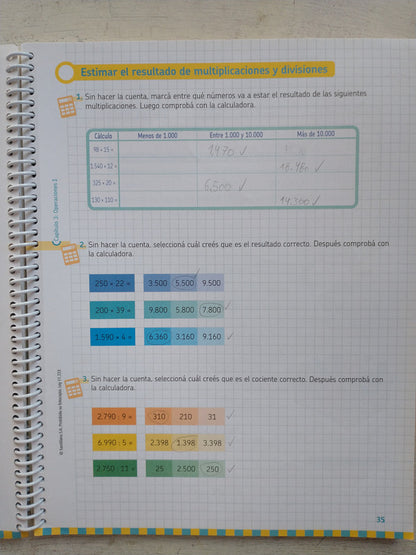 Estimar el resultado de multiplicaciones y divisiones
1. Sin hacer la cuenta, marcá entre qué números va a estar el resultado de las siguientes
multiplicaciones. Luego comprobá con la calculadora.
Cálculo Menos de 1.000 Entre 1.000 y 10.000 Más de 10.000
98 × 15 = 1470 ✓
1.540 × 12 = 18.480 ✓
325 × 20 = 6.500 ✓
130 × 110 = 14.300 ✓
2. Sin hacer la cuenta, seleccioná cuál creés que es el resultado correcto. Después comprobá con
la calculadora.
250 × 22 = 3.500 5.500 9.500 ✓
200 × 39 = 9.800 5.800 7.800 ✓
1.590 × 4 = 6.360 3.160 9.160 ✓
3. Sin hacer la cuenta, seleccioná cuál creés que es el cociente correcto. Después comprobá con
la calculadora.
2.790 : 9 = 310 210 31 ✓
6.990 : 5 = 2.398 1.398 3.398 ✓
2.750 : 11 = 25 2.500 250 ✓
Capítulo 3: Operaciones I
© Santillana S.A. Prohibida su fotocopia. Ley 11.723
35